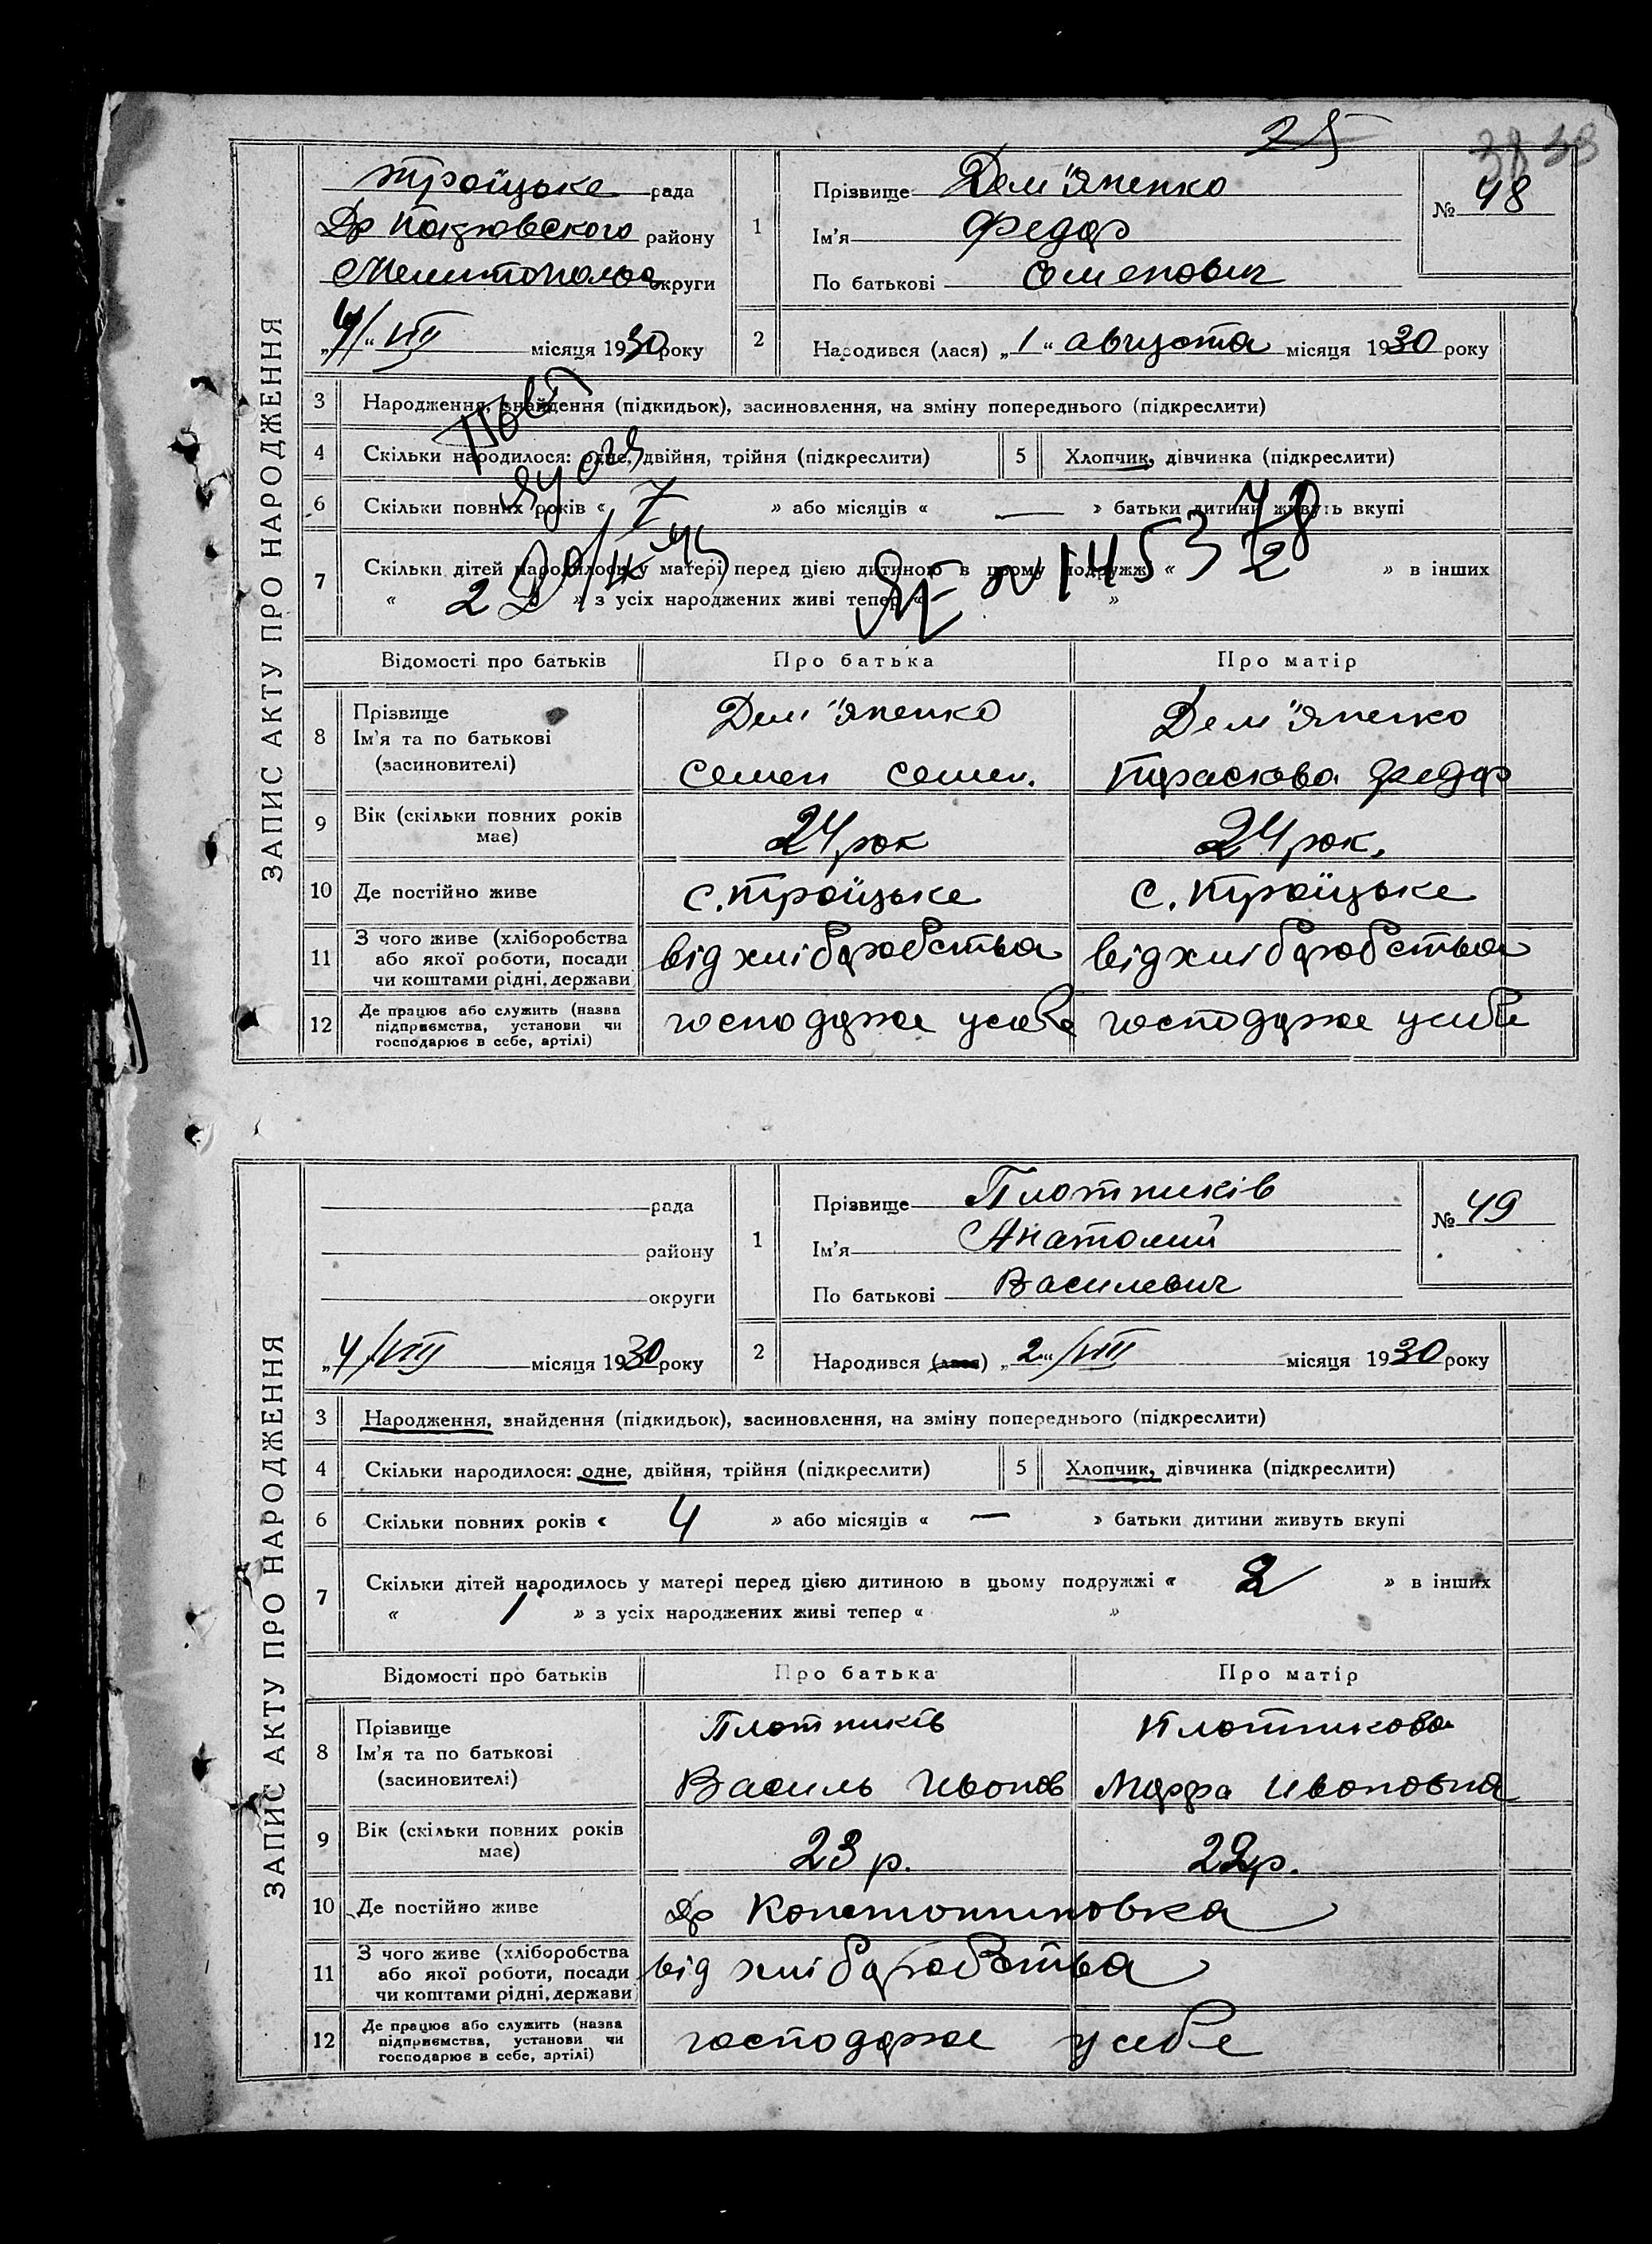 25
38 38
ЗАПИС АКТУ ПРО НАРОДЖЕННЯ
Троїцьке рада
району
Мелитополь округи
"4/" VIII місяця 1930 року
1 Прізвище Дем"яненко
Ім'я Федор
По батькові Семенович
№ 48
2 Народився (лася) „1" августа місяця 1930 року
3 Народження, знайдення (підкидьок), засиновлення, на зміну попереднього (підкреслити)
4 Скільки народилося: одне, двійня, трійня (підкреслити) 5 Хлопчик, дівчинка (підкреслити)
6 Скільки повних років « 7 » або місяців « — » батьки дитини живуть вкупі
7 Скільки дітей народилось у матері перед цією дитиною в цьому подружжі « 2 » в інших
« 2 » з усіх народжених живі тепер « »
№ 145378
Відомості про батьків Про батька Про матір
8 Прізвище Дем"яненко Дем"яненко
Ім'я та по батькові
(засиновителі) Семен Семен. Параскева Федор
9 Вік (скільки повних років має) 24 рок 24 рок.
10 Де постійно живе с. Троїцьке с. Троїцьке
11 З чого живе (хліборобства
або якої роботи, посади
чи коштами рідні, держави від хліборобства від хліборобства
12 Де працює або служить (назва
підприємства, установи чи
господарює в себе, артілі) господарює у себе господарює у себе
ЗАПИС АКТУ ПРО НАРОДЖЕННЯ
рада
району
округи
„4/VIII місяця 1930 року
1 Прізвище Плотників
Ім'я Анатолий
По батькові Василевич
№ 49
2 Народився (лася) „2"/VIII місяця 1930 року
3 Народження, знайдення (підкидьок), засиновлення, на зміну попереднього (підкреслити)
4 Скільки народилося: одне, двійня, трійня (підкреслити) 5 Хлопчик, дівчинка (підкреслити)
6 Скільки повних років « 4 » або місяців « — » батьки дитини живуть вкупі
7 Скільки дітей народилось у матері перед цією дитиною в цьому подружжі « 2 » в інших
« 1 » з усіх народжених живі тепер « »
Відомості про батьків Про батька Про матір
8 Прізвище Плотників Плотникова
Ім'я та по батькові
(засиновителі) Василь Иванов Марфа Ивановна
9 Вік (скільки повних років має) 23 р. 22 р.
10 Де постійно живе др Константиновка
11 З чого живе (хліборобства
або якої роботи, посади
чи коштами рідні, держави від хліборобства
12 Де працює або служить (назва
підприємства, установи чи
господарює в себе, артілі) господарює у себе